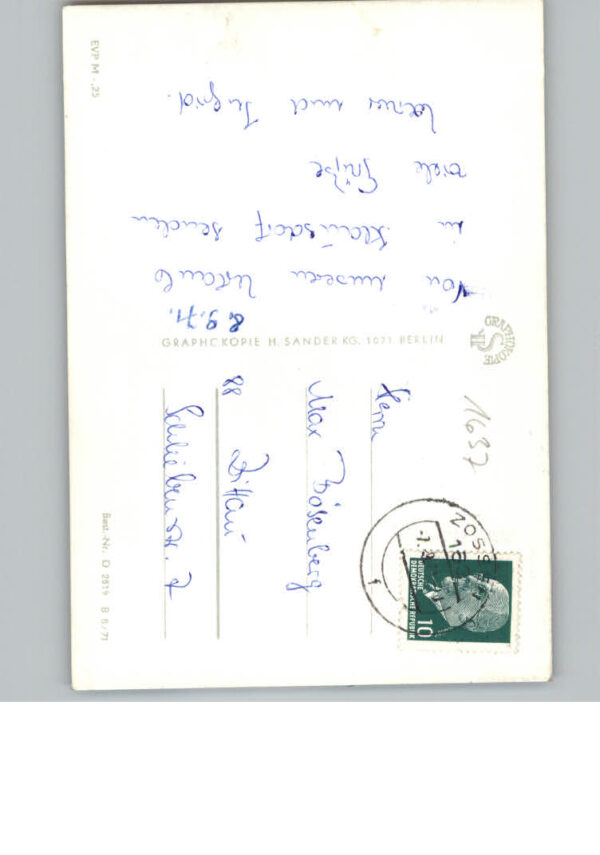 8.9.71.
Von unserem Urlaub
in Klausdorf senden
viele Grüße
Werner und Ingrid.
EVP M -,25
GRAPHOKOPIE H. SANDER KG, 1071 BERLIN
GRAPHOKOPIE
HS
11637
Herrn
Max Bösenberg
88 Zittau
Schliebenstr. 7
ZOSSEN
1
DEUTSCHE
DEMOKRATISCHE REPUBLIK
10
Best.-Nr. D 2819 B 8/71